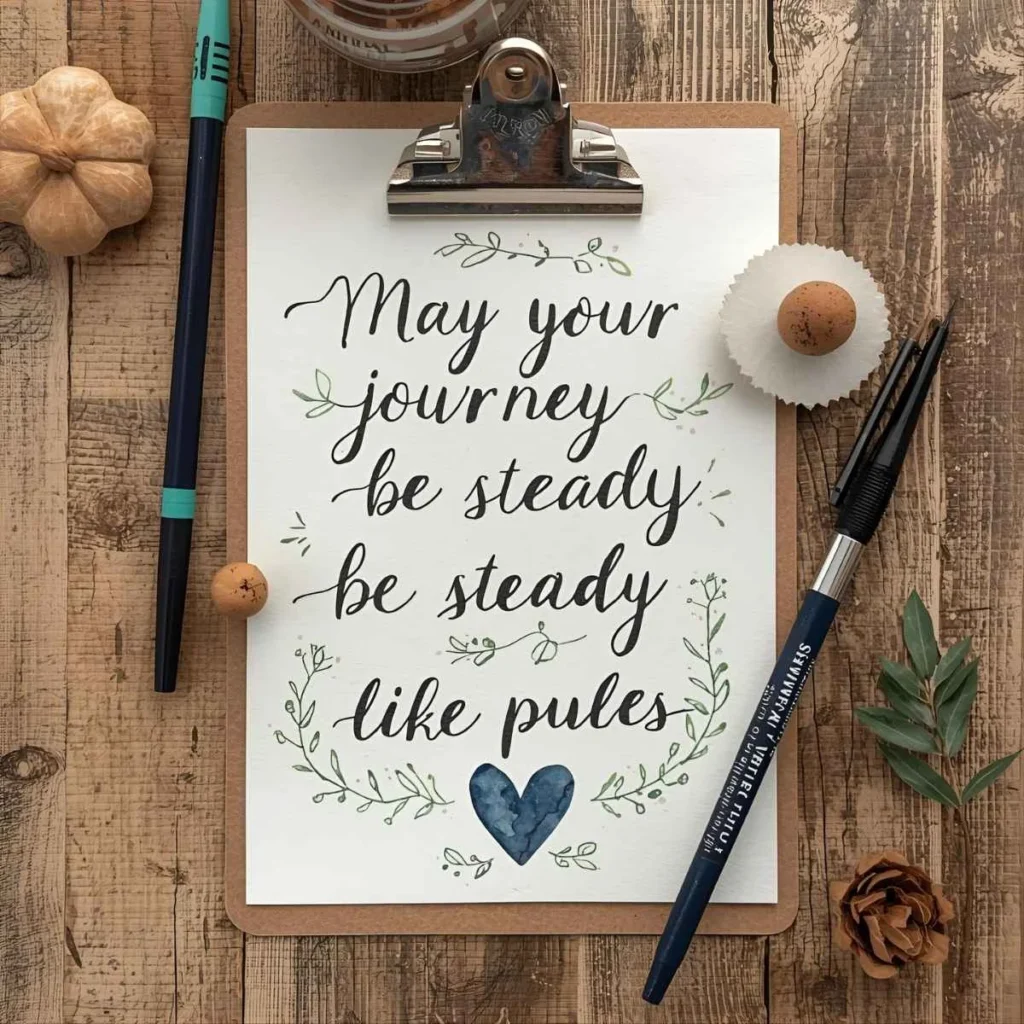 May your
journey
be steady
be steady
like pules